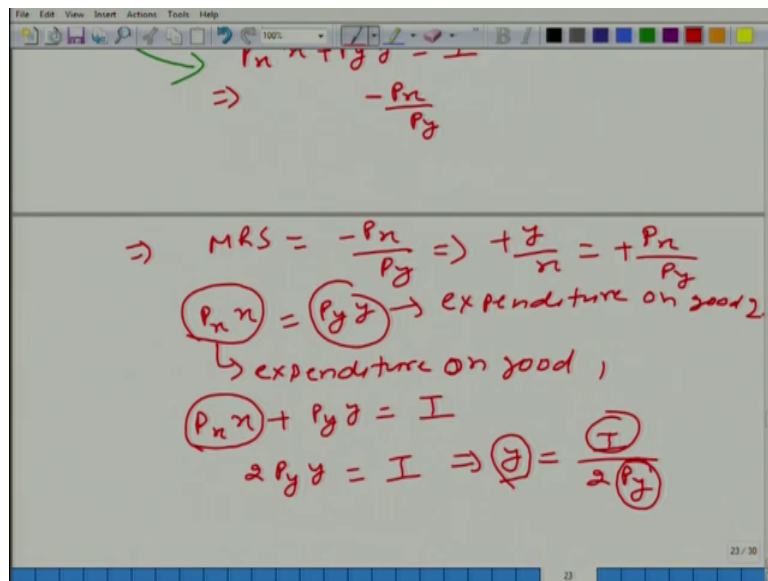 File Edit View Insert Actions Tools Help
100%
Pₓ x + P_y y = I
⇒ -Pₓ/P_y
⇒ MRS = -Pₓ/P_y ⇒ +y/x = +Pₓ/P_y
Pₓ x = P_y y → expenditure on good 2
↳ expenditure on good 1
Pₓ x + P_y y = I
2 P_y y = I ⇒ y = I/2P_y
23 / 30
23